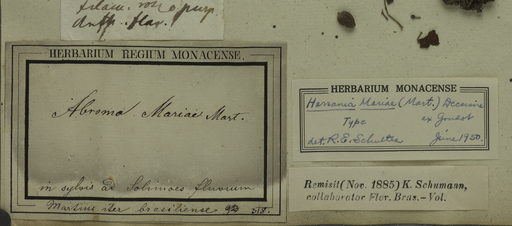 filam. roseo purp.
anth. flav.
HERBARIUM REGIUM MONACENSE.
Abroma Mariae Mart.
in sylvis ad Solimoes fluvium
Martius iter brasiliense 518.
HERBARIUM MONACENSE
Herrania Mariae (Mart.) Decaisne
ex Goudot
Type
det. R. E. Schultes June 1950
Remisit (Nov. 1885) K. Schumann,
collaborator Flor. Bras.-Vol.